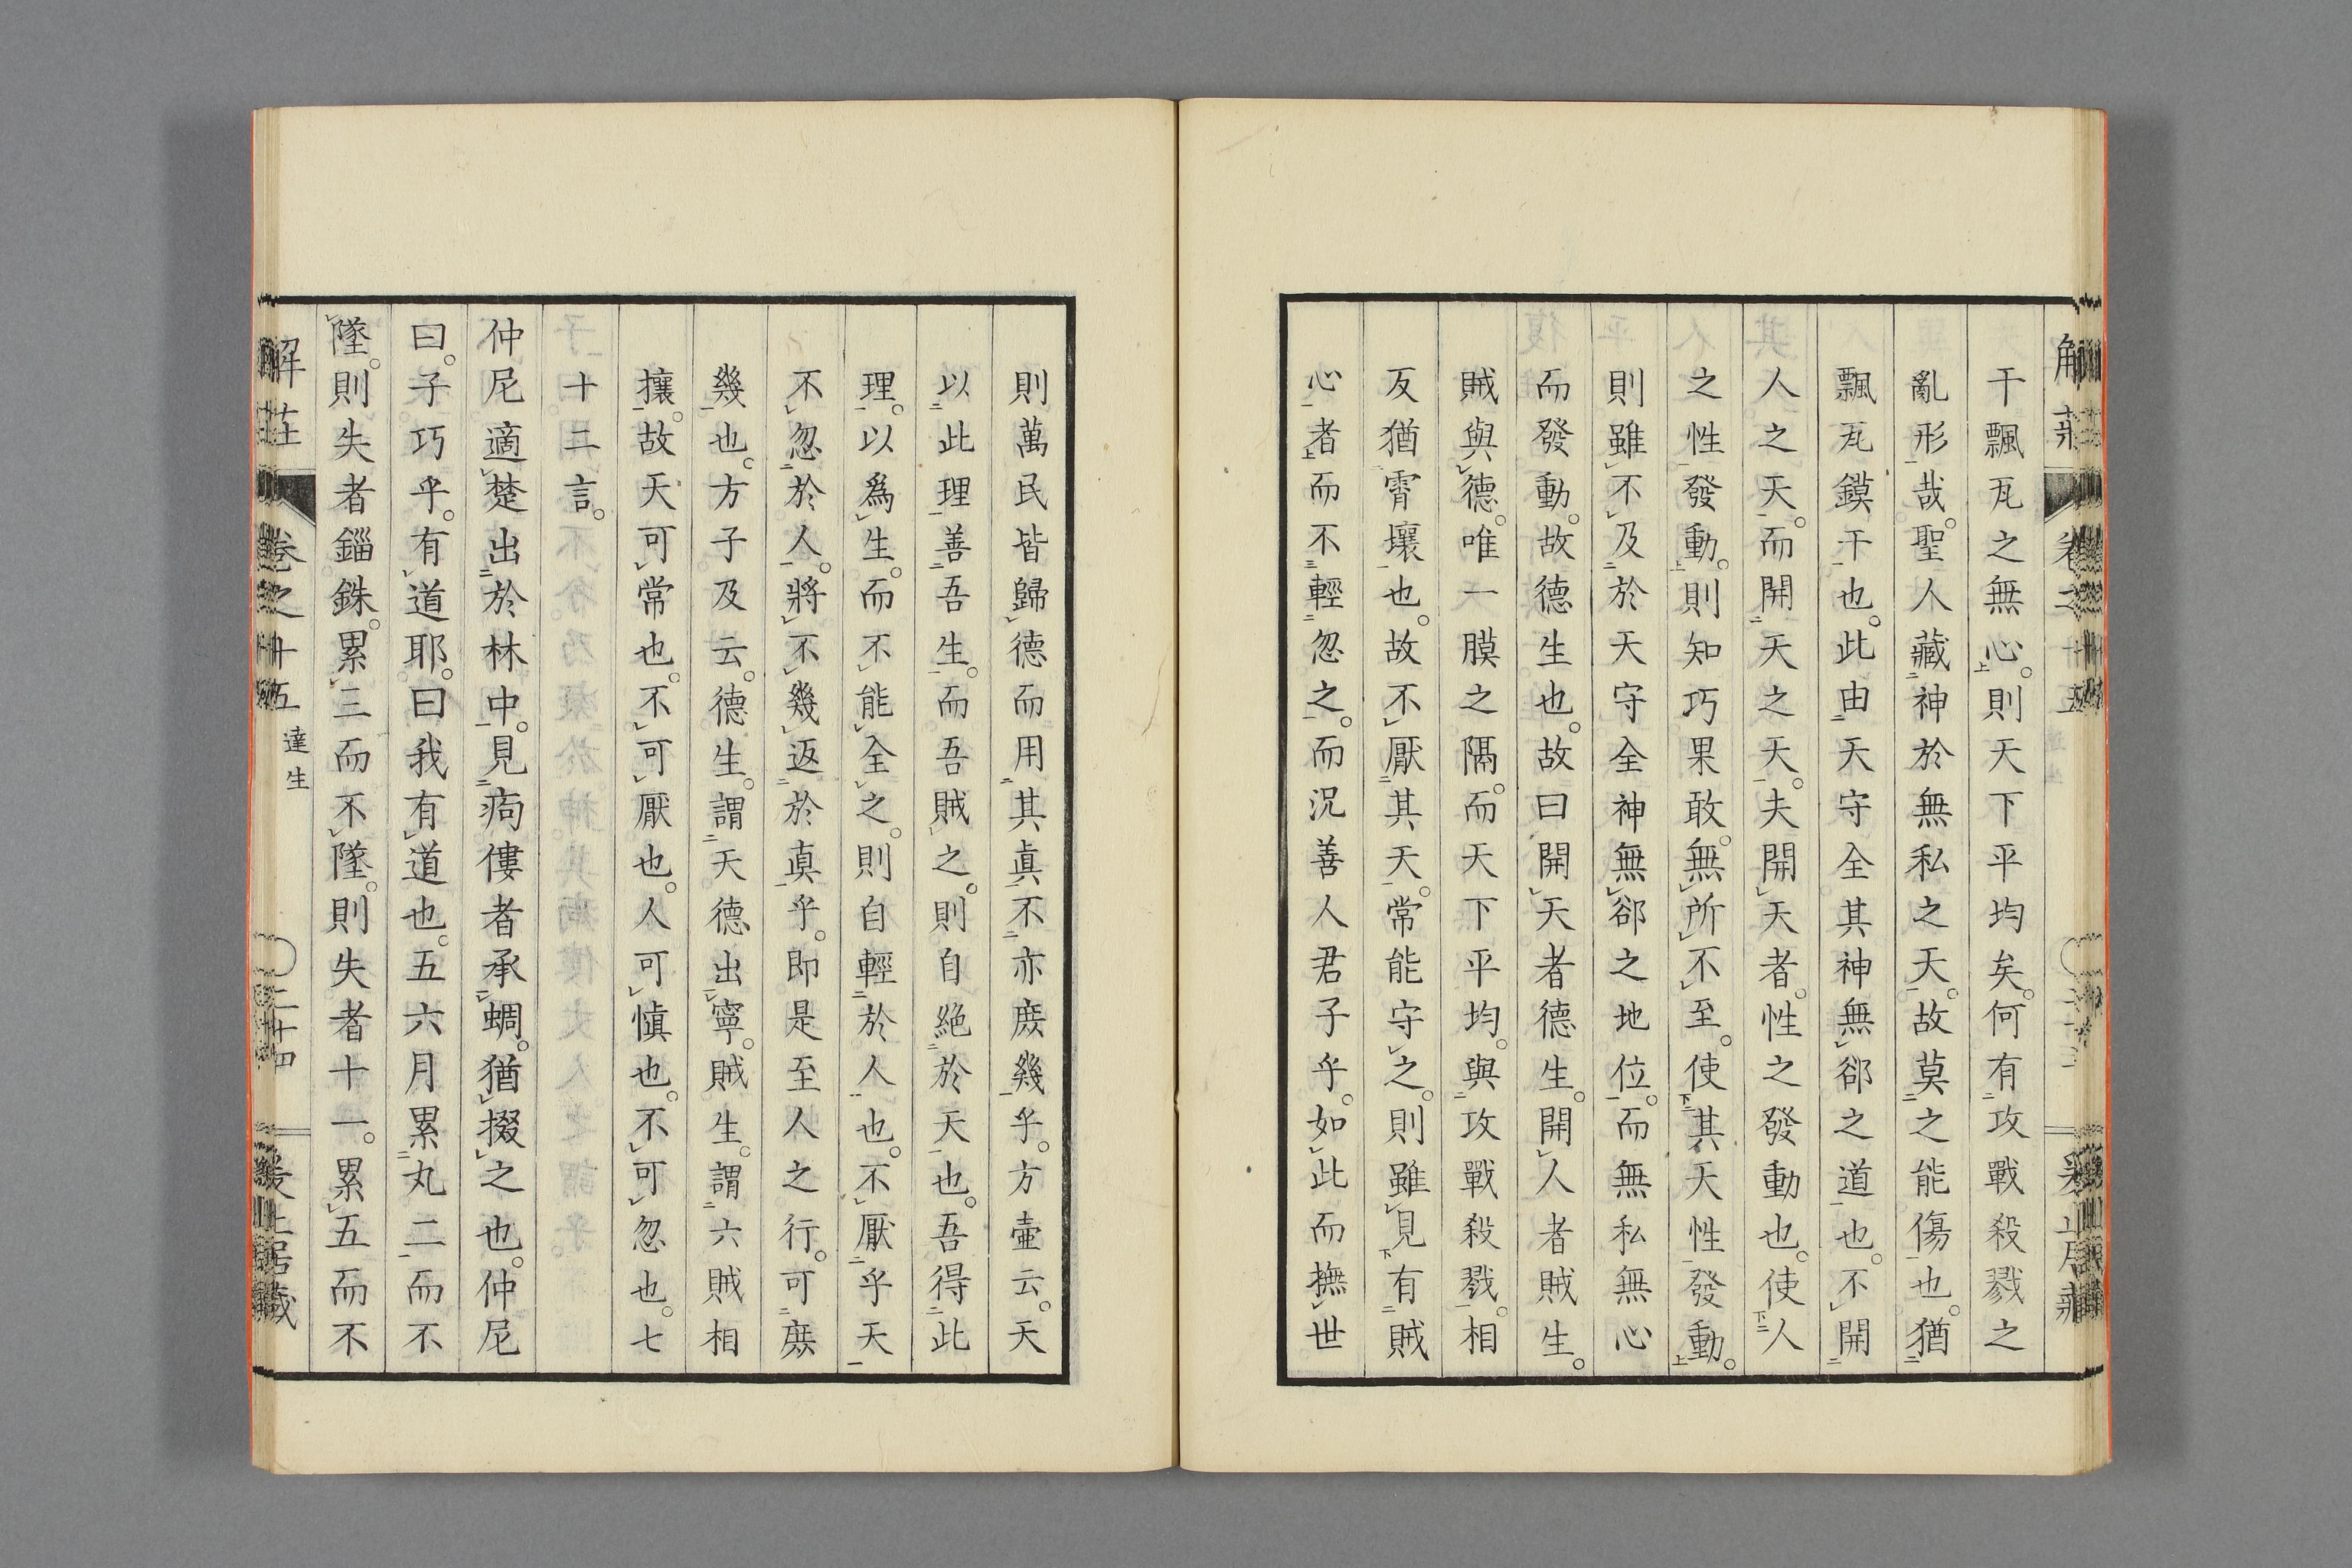 干飄瓦之無心。則天下平均矣。何有攻戰殺戮之
亂形哉。聖人藏神於無私之天。故莫之能傷也。猶
飄瓦鏌干也。此由天守全其神無郤之道也。不開
人之天。而開天之天。夫開天者。性之發動也。使人
之性發動。則知巧果敢。無所不至。使其天性發動。
則雖不及於天守全神無郤之地位。而無私無心
而發動。故德生也。故曰開天者德生。開人者賊生。
賊與德。唯一膜之隔。而天下平均。與攻戰殺戮。相
反猶霄壤也。故不厭其天。常能守之。則雖見有賊
心者而不輕忽之。而況善人君子乎。如此而撫世
則萬民皆歸德而用其眞不亦庶幾乎。方壷云。天
以此理善吾生。而吾賊之。則自絶於天也。吾得此
理。以爲生。而不能全之。則自輕於人也。不厭乎天
不忽於人。將不幾返於眞乎。即是至人之行。可庶
幾也。方子及云。德生。謂天德出寧。賊生。謂六賊相
攘。故天可常也。不可厭也。人可愼也。不可忽也。七
十二言。
仲尼適楚出於林中。見痀僂者承蜩。猶掇之也。仲尼
曰。子巧乎。有道耶。曰我有道也。五六月累丸二而不
墜。則失者錙銖。累三而不墜。則失者十一。累五而不
解莊 卷之十五 達生 二十四